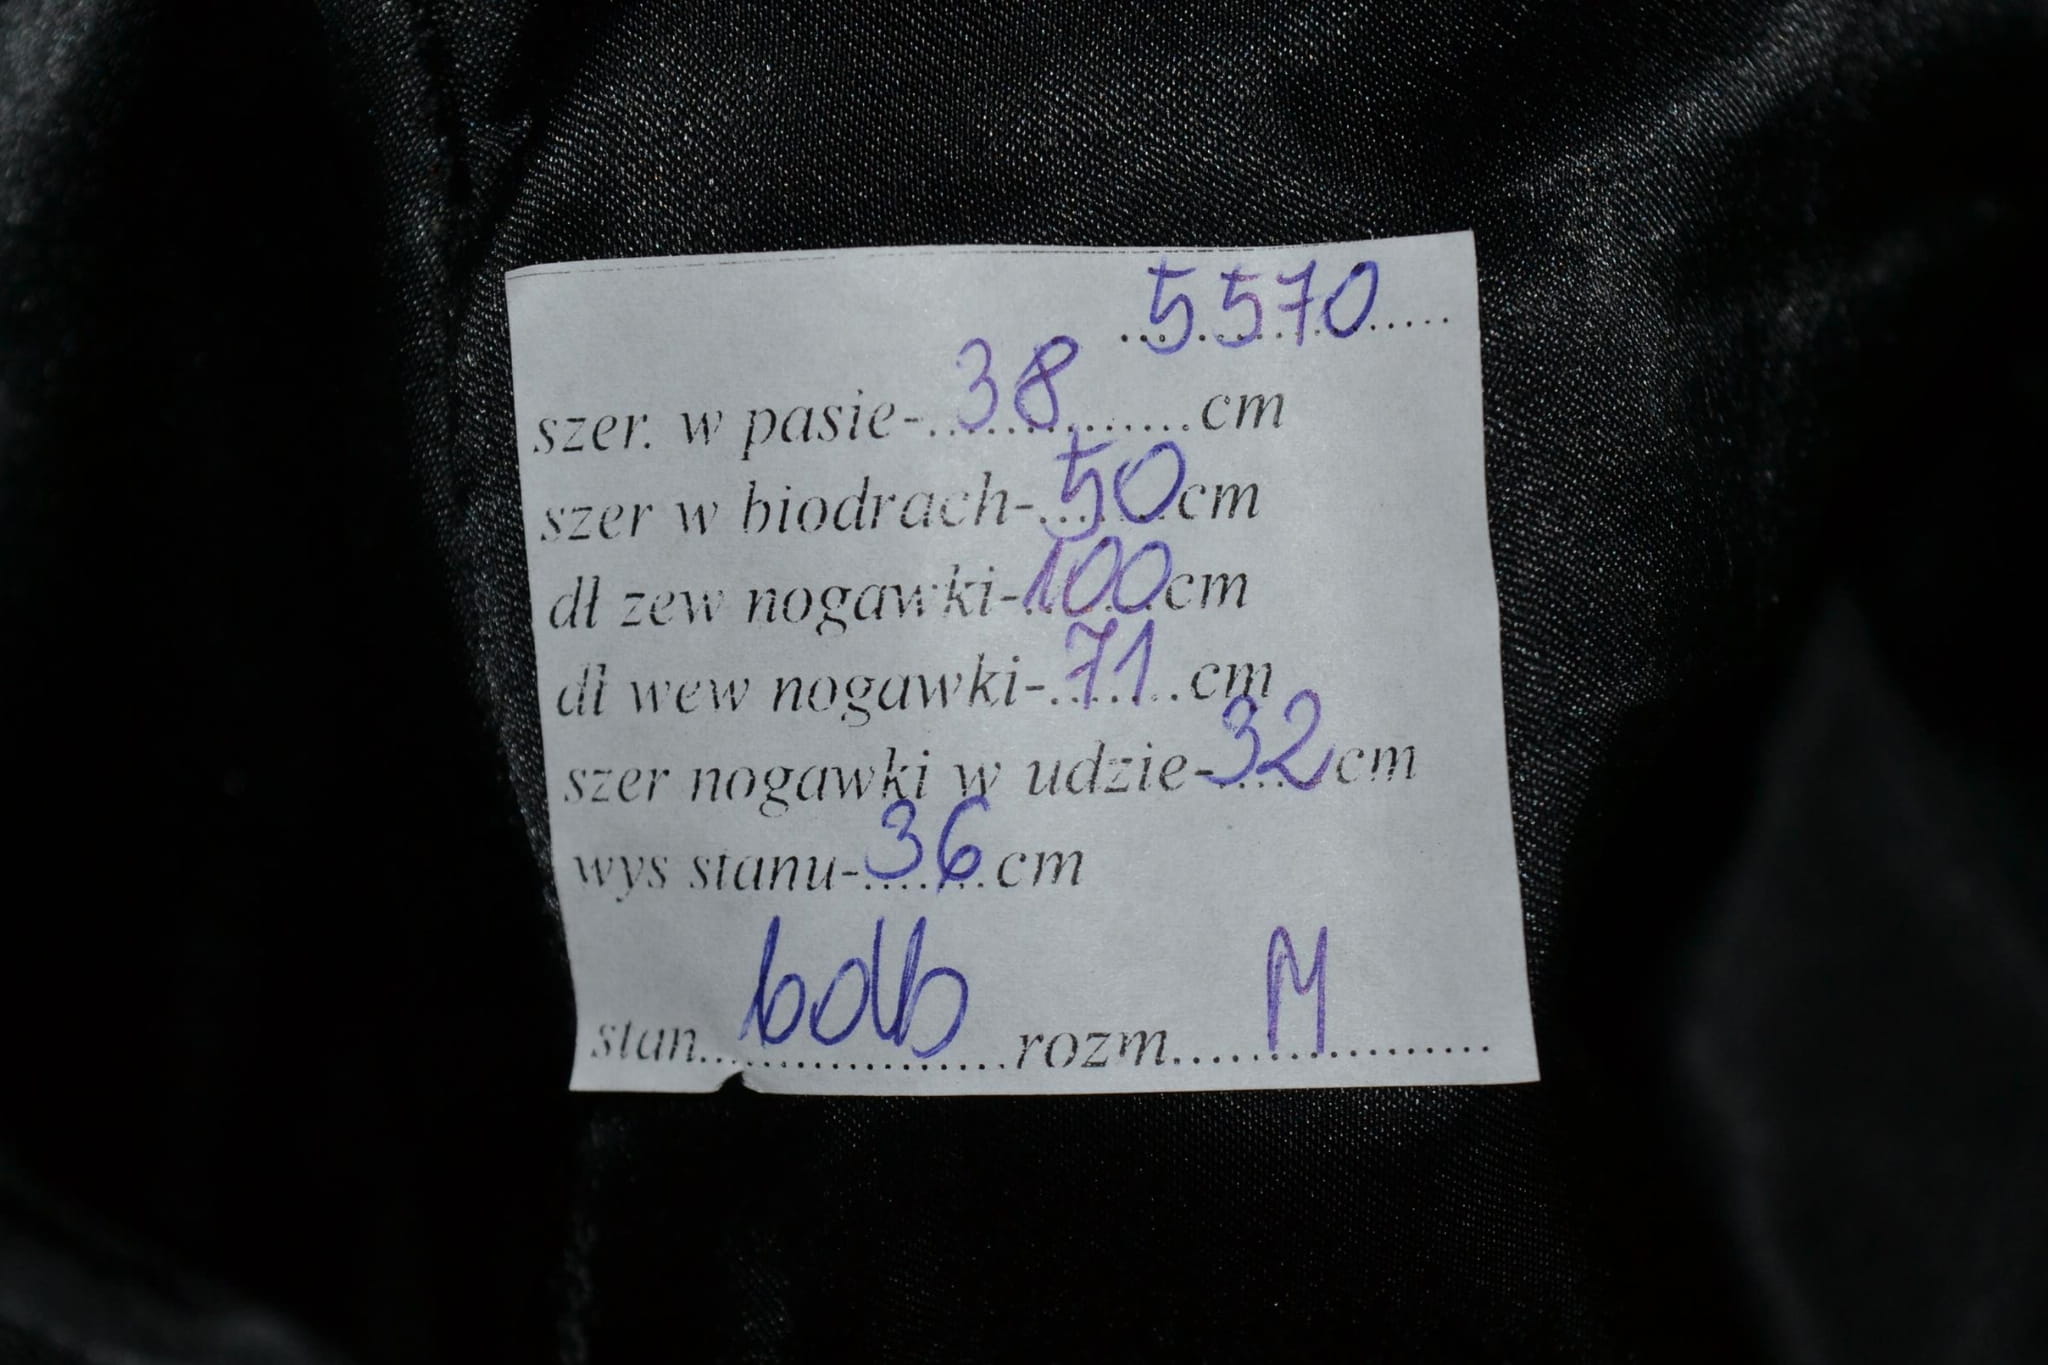 5570
szer. w pasie-38cm
szer w biodrach-50cm
dł zew nogawki-100cm
dł wew nogawki-71cm
szer nogawki w udzie-32cm
wys stanu-36cm
stan bdb rozm M